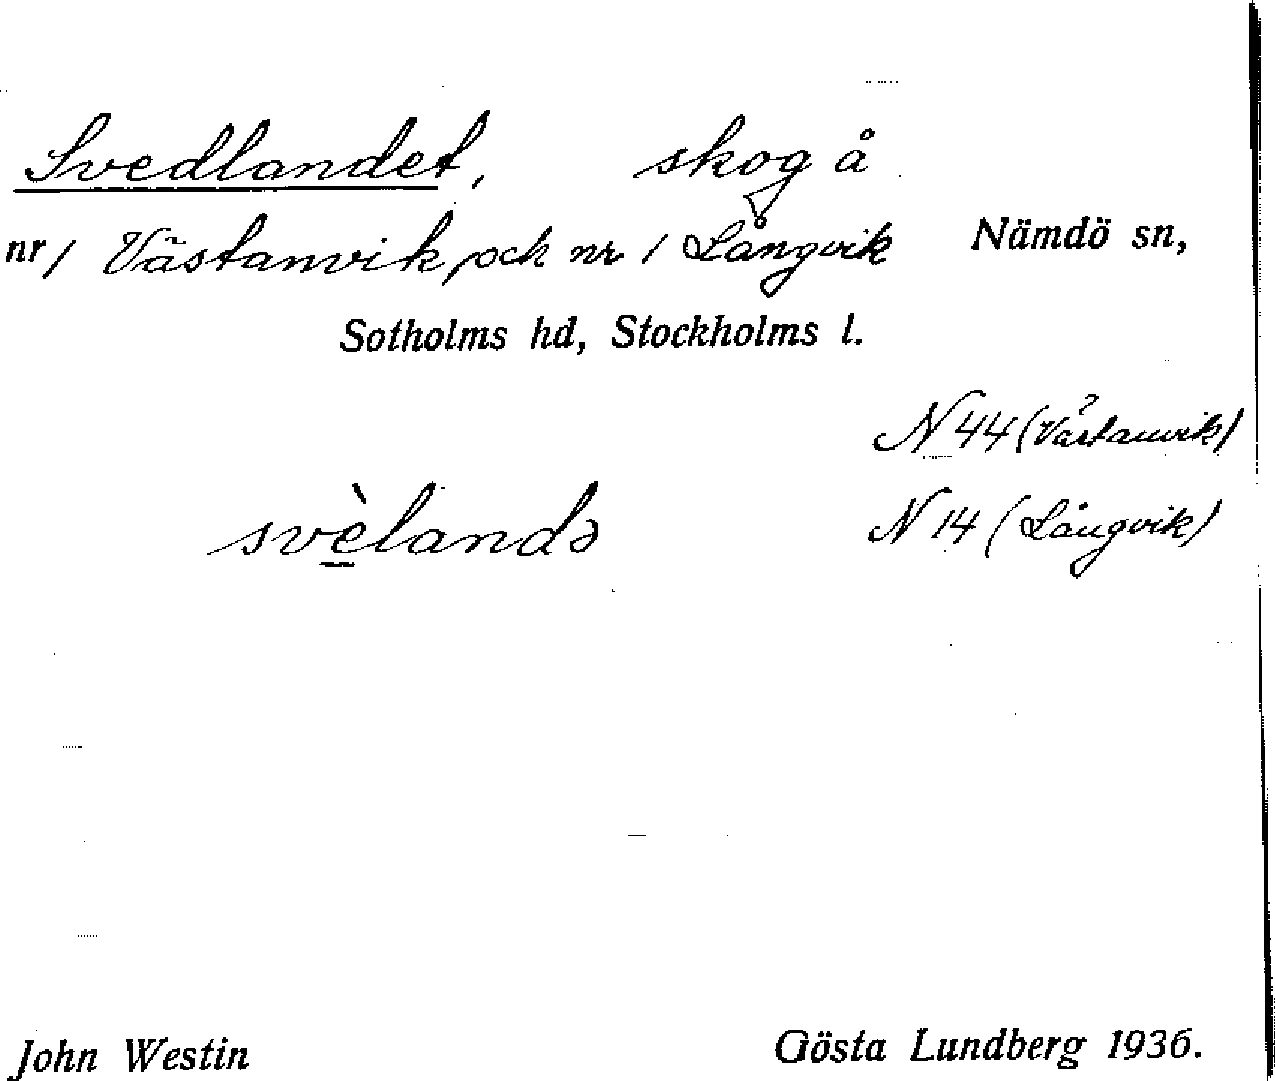 Svedlandet, skog å
nr 1 Västanvik, och nr 1 Långvik Nämdö sn,
Sotholms hd, Stockholms l.
N 44 (Västanvik)
svèlandə N 14 (Långvik)
John Westin Gösta Lundberg 1936.